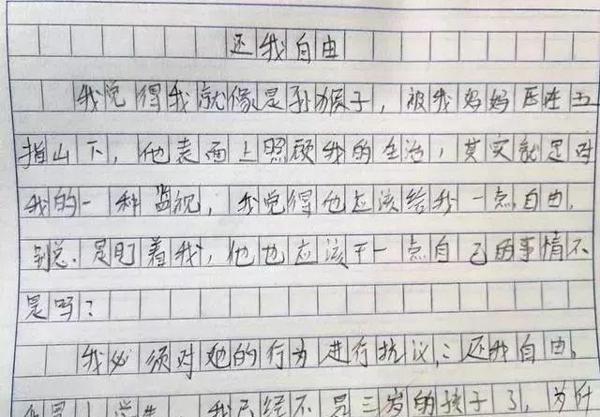 还我自由
我觉得我就像是孙猴子，被我妈妈压在五
指山下，他表面上照顾我的生活，其实就是对
我的一种监视，我觉得他应该给我一点自由，
别总是盯着我，他也应该干一点自己的事情不
是吗？
我必须对她的行为进行抗议，还我自由，
我已经不是三岁的孩子了，为什